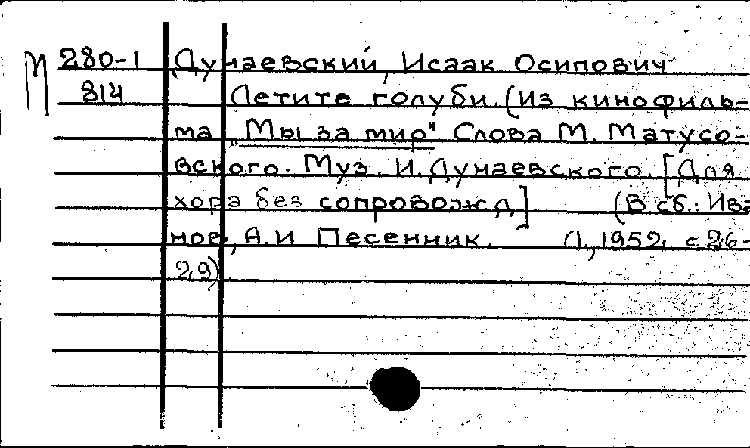 П 280-1 Дунаевский, Исаак Осипович
814 Летите голуби. (Из кинофиль-
ма „Мы за мир" Слова М. Матусо-
вского. Муз. И. Дунаевского. [Для
хора без сопровожд] (В сб.: Ива
нов, А.И Песенник. 1952. с 26-
29)